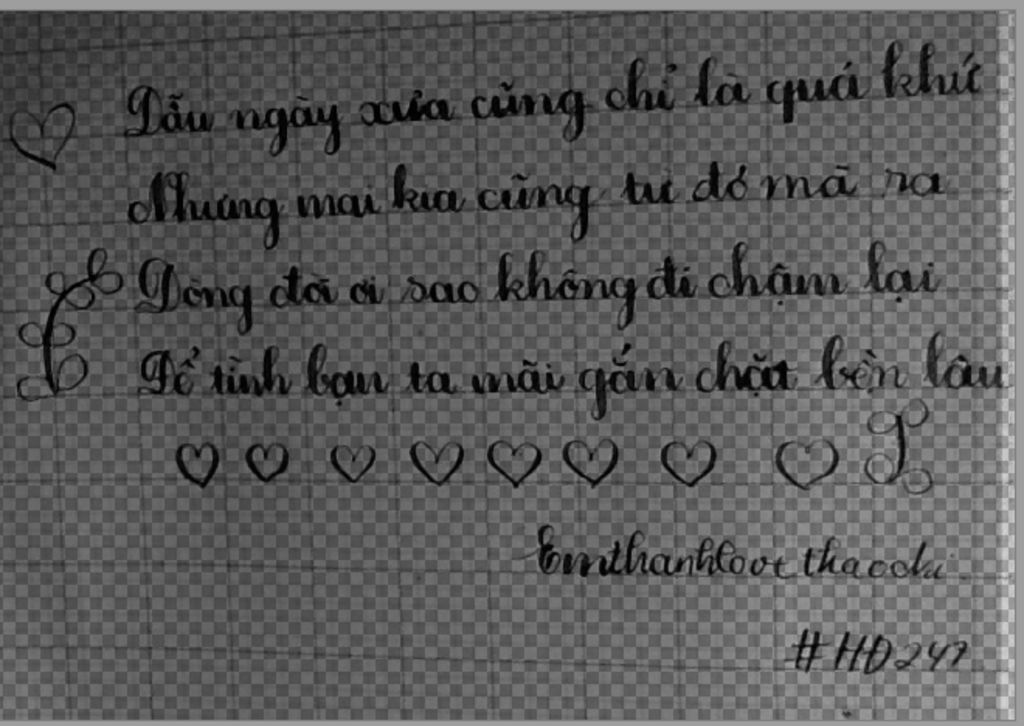 Dẫu ngày xưa cũng chỉ là quá khứ
Nhưng mai kia cũng từ đó mà ra
Dòng đời ơi sao không đi chậm lại
Để tình bạn ta mãi gắn chặt bền lâu
Emthanhlove thaodu
#HD247